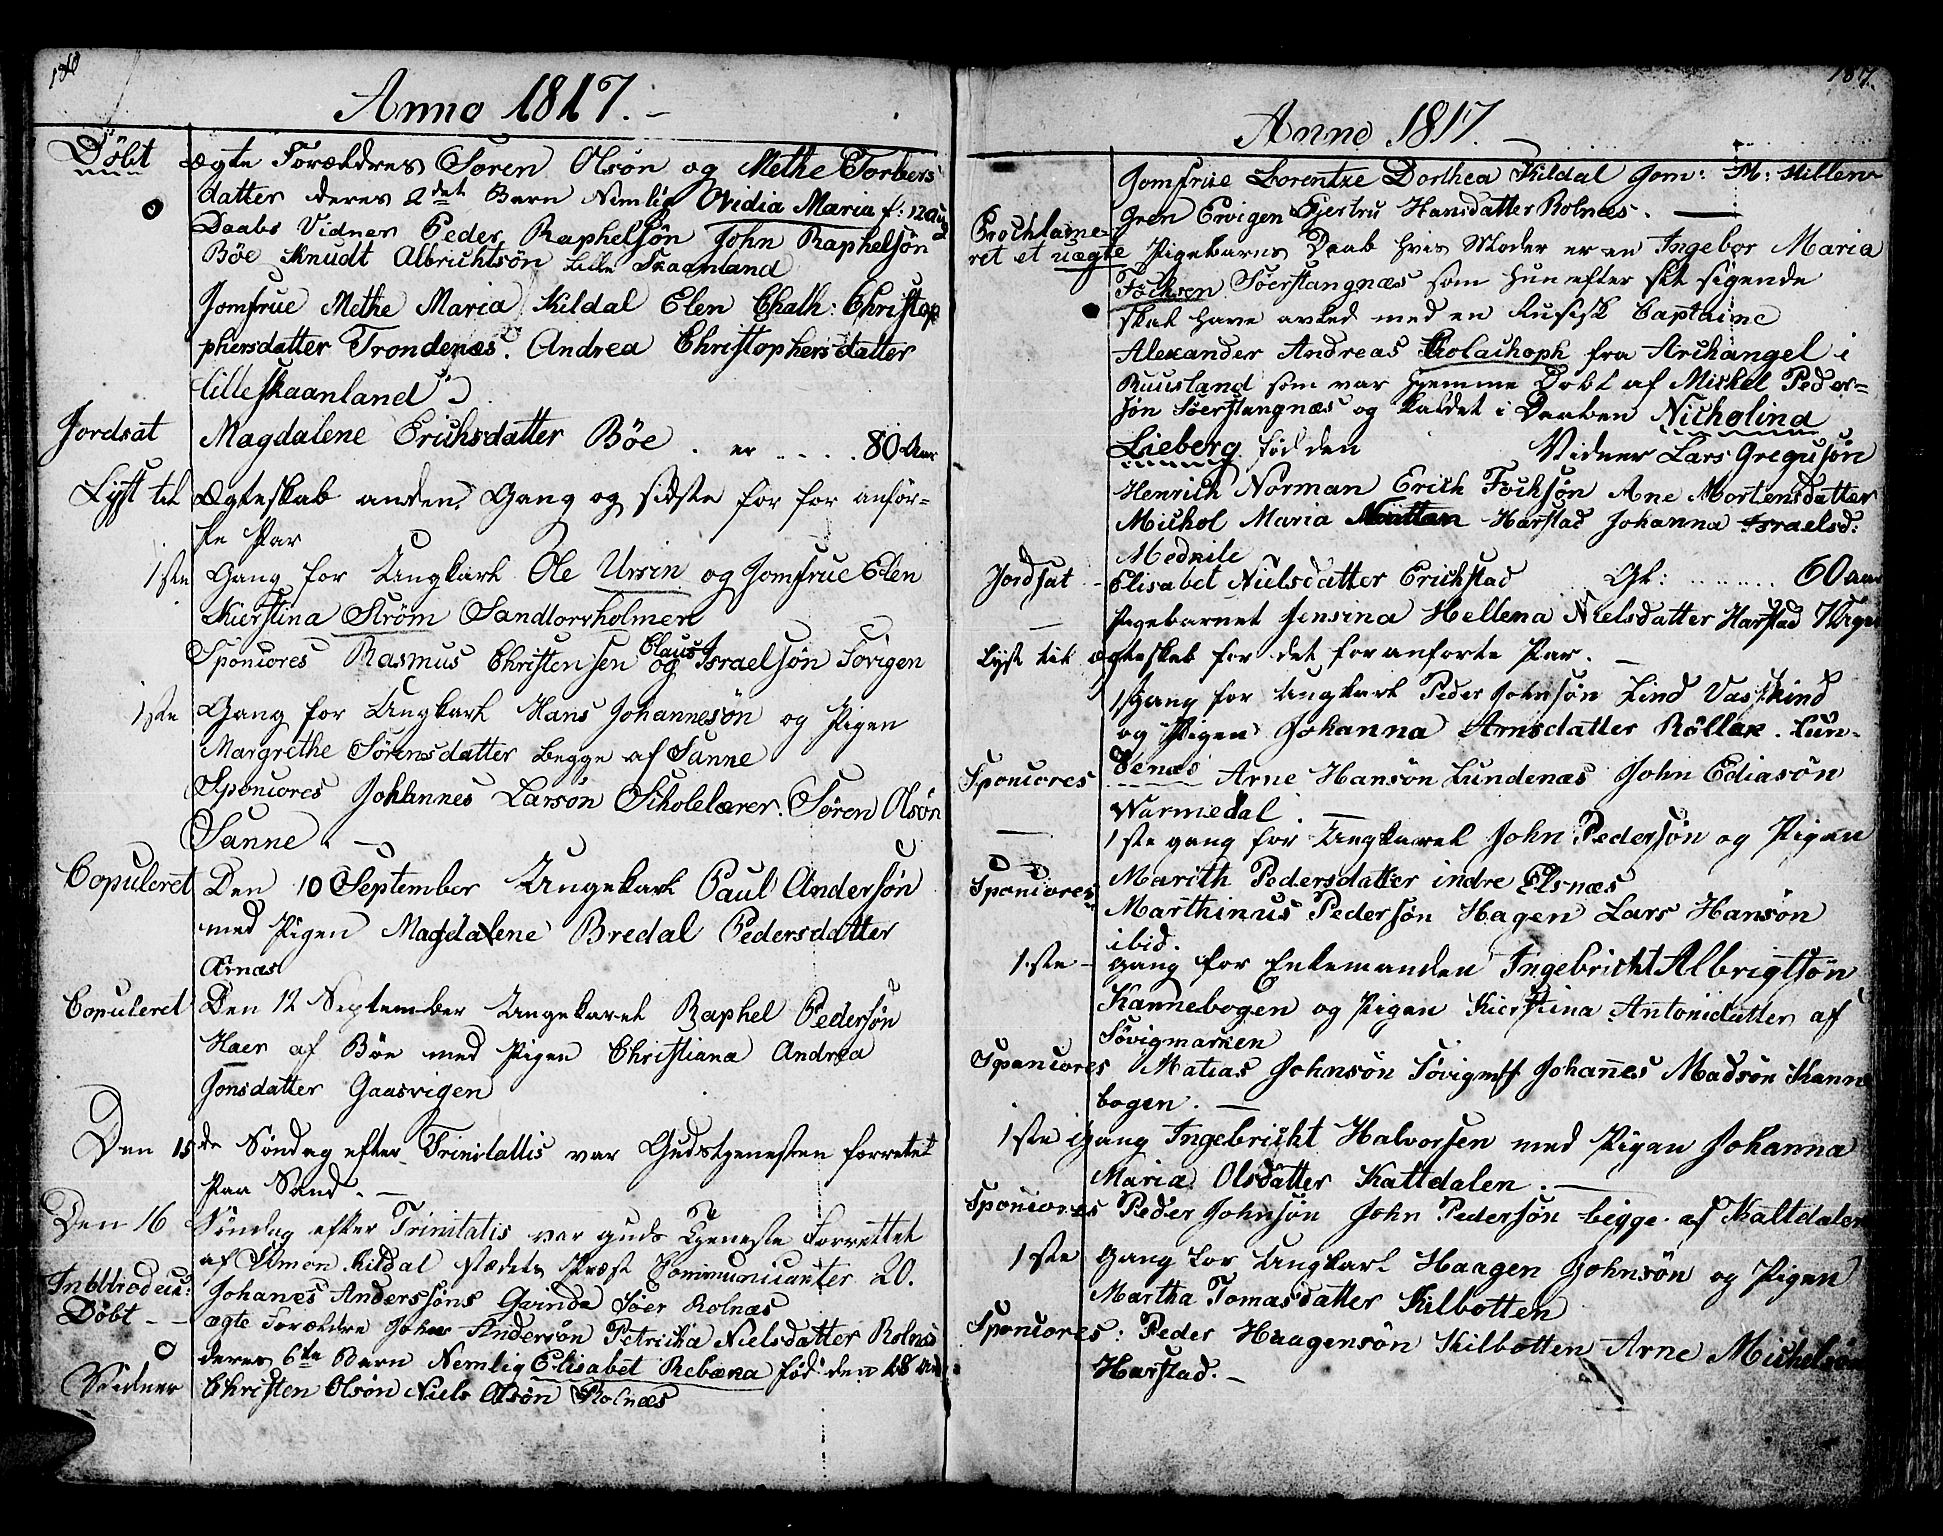 Anno 1817.
Döbt ægte Forældres Sören Olsön og Methe Torbers
datter deres 2det Barn Nemlig Ovidia Maria f: 12 Aug
Daabs Vidner Peder Raphelsön John Raphelsön
Böe Knudt Albrichtsön Lille Skaanland
Jomfrue Methe Maria Kildal Elen Chath: Christop
phersdatter Trondenæs. Andrea Christophersdatter
lille skaanland
Jordsat Magdalene Erichsdatter Böe . er .... 80 Aar
Lyst til Ægteskab anden Gang og sidste for for anför-
te Par
1ste Gang for Ungkarl Ole Ursin og Jomfrue Elen
Kierstina Ström Sandtorvholmen
Sponsores Rasmus Christensen og Claus Israelsön Sörigen
1ste Gang for Ungkarl Hans Johannesön og Pigen
Margrethe Sörensdatter begge af Sanne
Sponsores Johannes Larsön Skolelærer. Sören Olsön
Sanne.
Copuleret Den 10 September Ungekarl Paul Andersön
med Pigen Magdalene Bredal Pedersdatter
Ærnæs
Copuleret Den 12 September Ungekarel Raphel Pedersön
Haer af Böe med Pigen Christiana Andrea
Jonsdatter Gaasvigen
Den 15de Söndag efter Trinitattis var Gudstjenesten forretet
paa Sand.
Den 16 Söndag efter Trinitatis var guds Tjeneste forrettet
af Simon Kildal stædets Præst Communicanter 20.
Introduc: Johanes Anderssöns Qvinde Söer Rolnæs
Döbt - - ægte Forældre John Andersön Petricka Nielsdatter Rolnæs
deres 6te Barn Nemlig Elisabet Rebæna föd den 28 Aug
Vidner Christen Olsön Niels Olsön Rolnæs
187.
Anno 1817.
Jomfrue Lorentze Dorthea Kildal Jom: M: Hillen-
Gren Ervigen Gjertru Hansdatter Rolnæs.
ret et uægte Pigebarns Daab hvis Moder er en Ingebor Maria
Föchsen Söerstangnæs som hun efter sit sigende
skal have avled med en Rusisk Captaine
Alexander Andreas Kolachoph fra Archangel i
Ruusland som var hjemme Döbt af Mickel Peder-
sön Söerstangnæs og kaldet i Daaben Nicholina
Lieberg föd den Vidner Lars Gregusön
Henrich Norman Erich Föchsön Ane Mortensdatter
Michol Maria Harstad Johanna Israelsd:
Medkile
Jordsat - Elisabet Nielsdatter Erichstad Gl: ....... 60 aar
Pigebarnet Jensina Hellema Nielsdatter Harstad
Lyst til ægteskab for det for anforte Par.
1 Gang for Ungkarl Peder Johnsön Lind Vasskind
og Pigen Johanna Arnsdatter Röllar. Lun-
denæs
Sponsores Arne Hansön Lundenæs John Ediasön
Warmedal
1ste gang for Ungkarel John Pedersön og Pigen
Marith Pedersdatter indre Elsnæs
Sponsores Marthinus Pedersön Hagen Lars Hansön
ibid.
1.ste - gang for Enkemanden Ingebricht Albrigtsön
Kannebogen og Pigen Kierstina Antonidatter af
Sövigmarken
Sponsores Matias Johnsön Sövigmk Johanes Madsön Kanne
bogen.
1ste gang Ingebricht Halvorsen med Pigen Johanna
Maria Olsdatter Kattdalen.
Sponsores Peder Johnsön John Pedersön begge af Kaltdalen
1ste Gang for Ungkarl Haagen Johnsön og Pigen
Martha Tomasdatter Kilbotten
Sponsores: Peder Haagensön Kilbotten Arne Michelsön
Harstad.